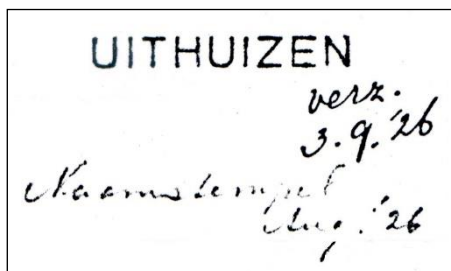 UITHUIZEN
verz.
3.9.'26
Naamstempel
Aug. '26